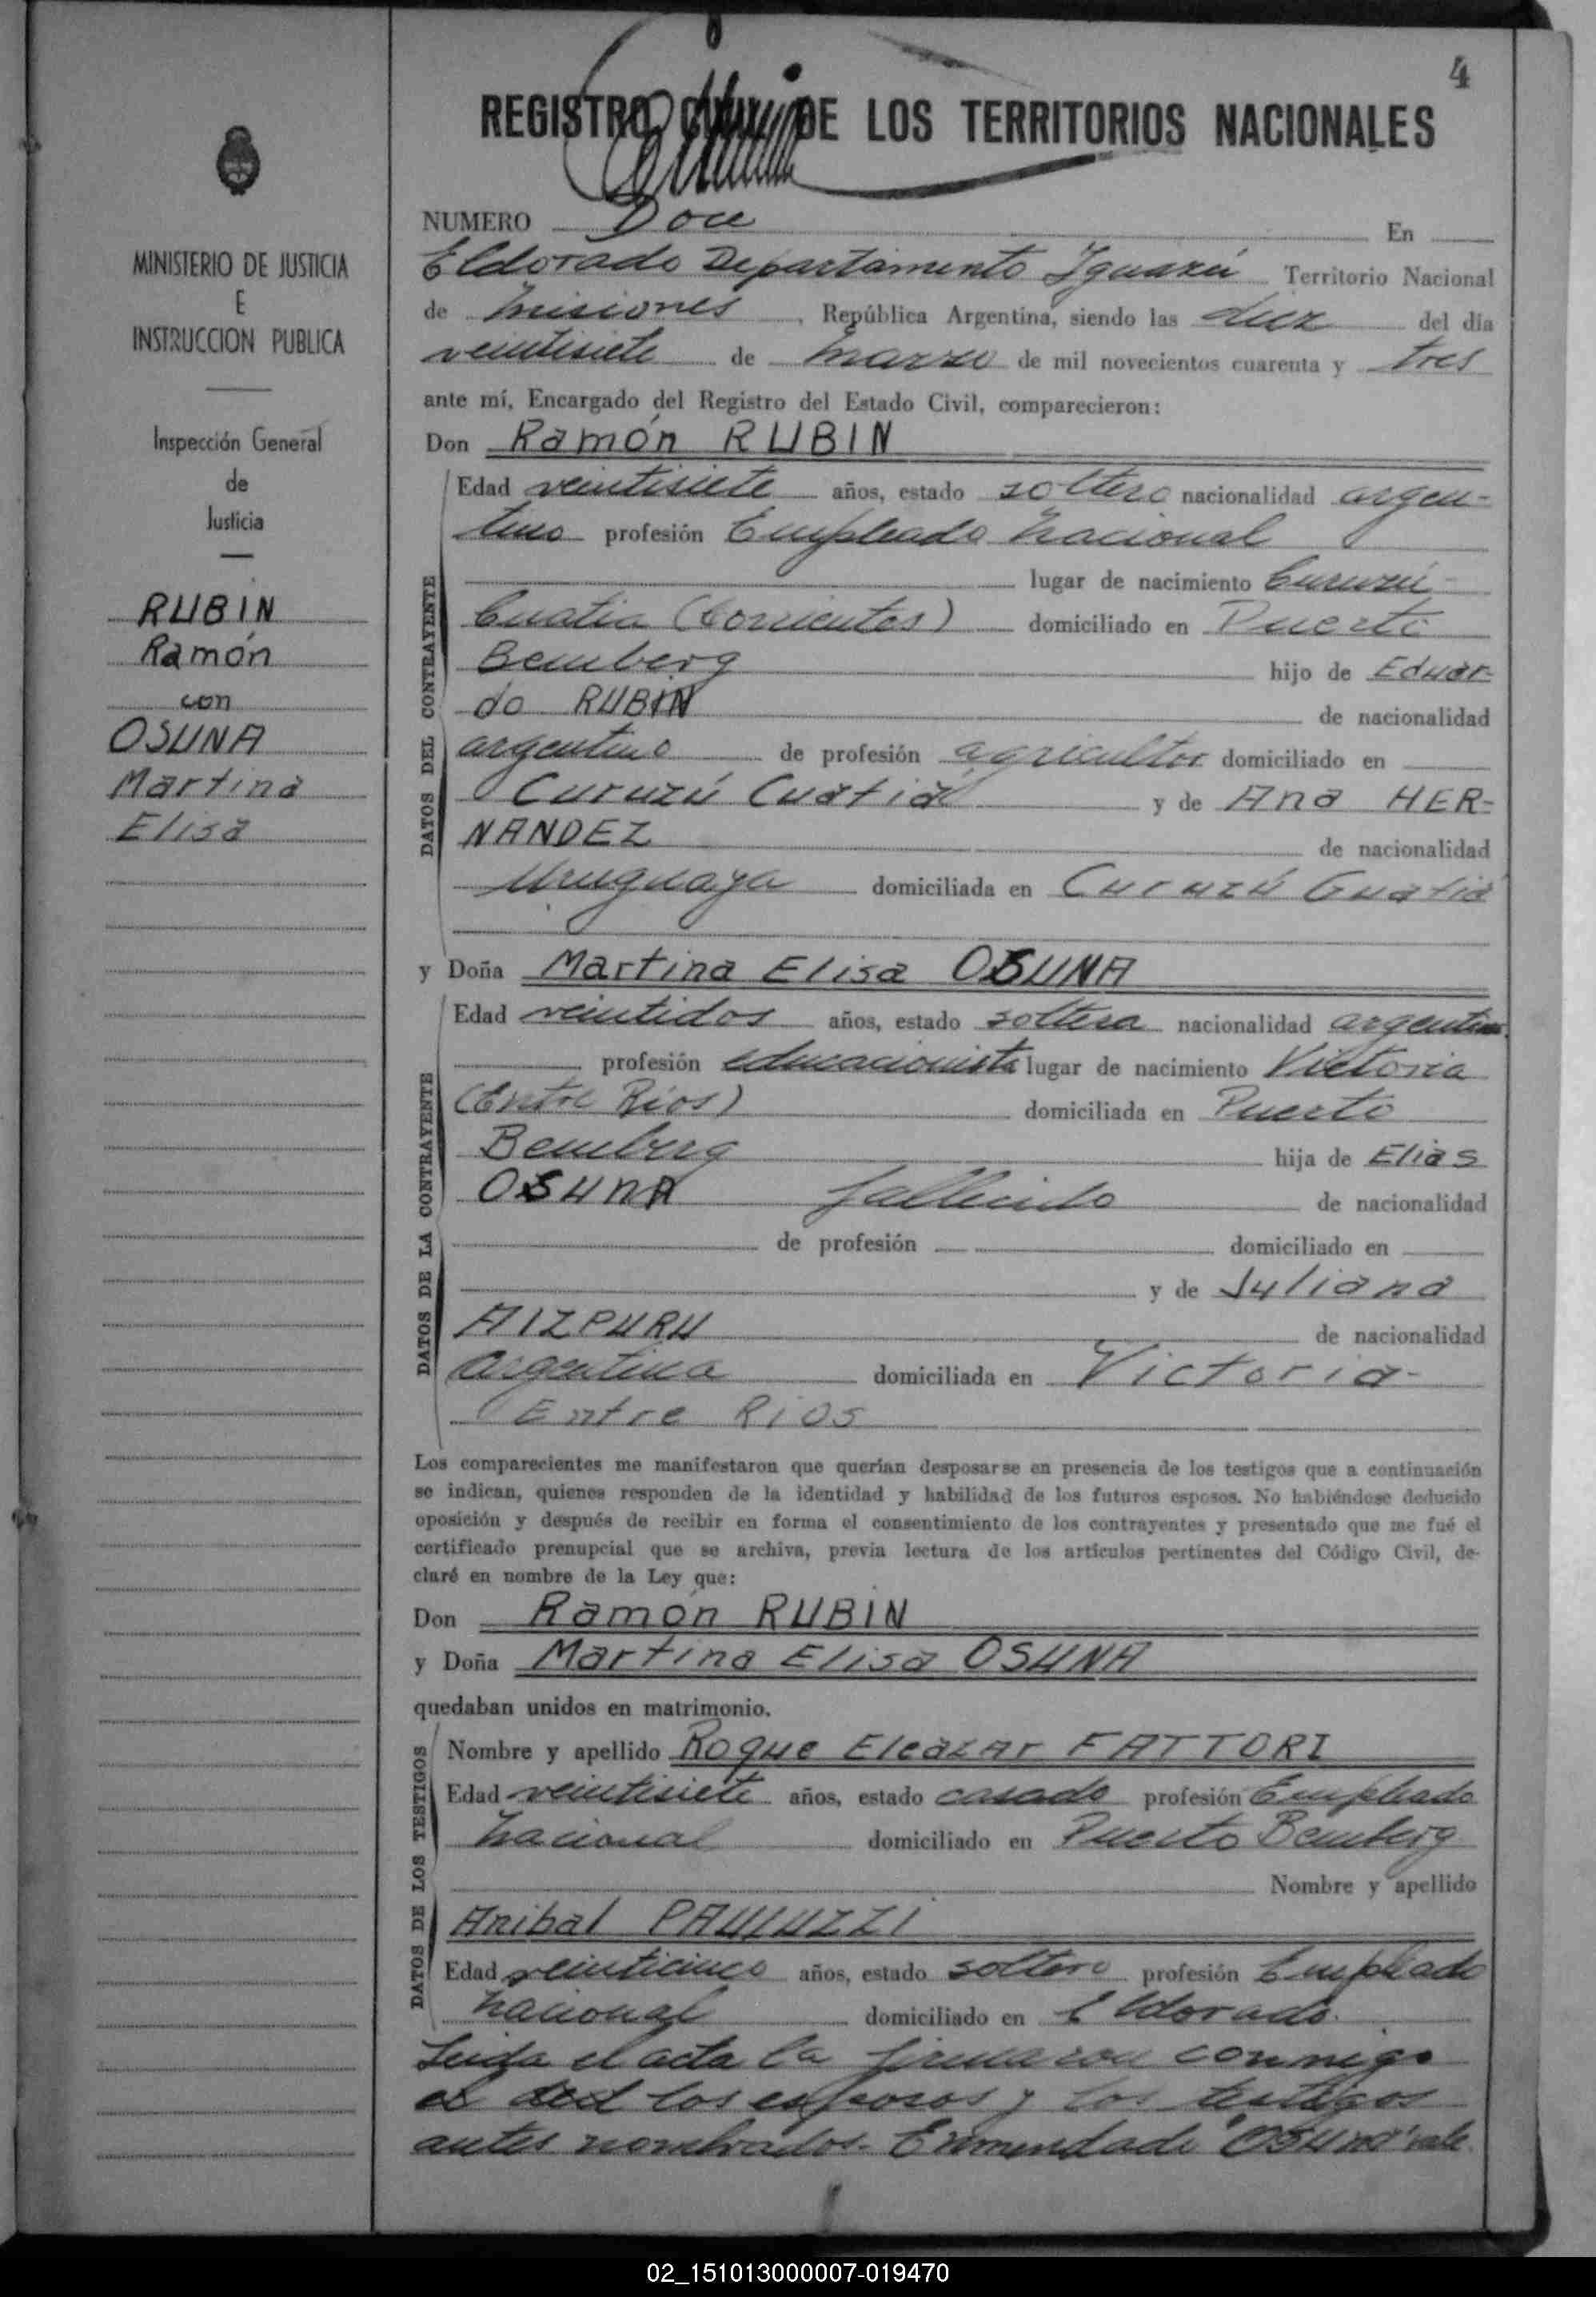 4
REGISTRO CIVIL DE LOS TERRITORIOS NACIONALES
MINISTERIO DE JUSTICIA
E
INSTRUCCION PUBLICA
Inspección General
de
Justicia
RUBIN
Ramón
con
OSUNA
Martina
Elisa
NUMERO Doce En
Eldorado Departamento Iguazú Territorio Nacional
de Misiones, República Argentina, siendo las diez del día
veintisiete de Marzo de mil novecientos cuarenta y tres
ante mí, Encargado del Registro del Estado Civil, comparecieron:
Don Ramón RUBIN
DATOS DEL CONTRAYENTE
Edad veintisiete años, estado soltero nacionalidad argen-
tino profesión Empleado Nacional
lugar de nacimiento Curuzú
Cuatia (Corrientes) domiciliado en Puerto
Bemberg hijo de Eduar-
do RUBIN de nacionalidad
argentino de profesión agricultor domiciliado en
Curuzú Cuatiá y de Ana HER-
NANDEZ de nacionalidad
Uruguaya domiciliada en Curuzú Cuatiá
y Doña Martina Elisa OSUNA
DATOS DE LA CONTRAYENTE
Edad veintidos años, estado soltera nacionalidad argentina
profesión educacionista lugar de nacimiento Victoria
(Entre Ríos) domiciliada en Puerto
Bemberg hija de Elias
OSUNA fallecido de nacionalidad
de profesión domiciliado en
y de Juliana
AIZPURU de nacionalidad
argentina domiciliada en Victoria-
Entre Rios
Los comparecientes me manifestaron que querían desposarse en presencia de los testigos que a continuación
se indican, quienes responden de la identidad y habilidad de los futuros esposos. No habiéndose deducido
oposición y después de recibir en forma el consentimiento de los contrayentes y presentado que me fué el
certificado prenupcial que se archiva, previa lectura de los artículos pertinentes del Código Civil, de-
claré en nombre de la Ley que:
Don Ramón RUBIN
y Doña Martina Elisa OSUNA
quedaban unidos en matrimonio.
DATOS DE LOS TESTIGOS
Nombre y apellido Roque Eleazar FATTORI
Edad veintisiete años, estado casado profesión Empleado
Nacional domiciliado en Puerto Bemberg
Nombre y apellido
Anibal PAULUZZI
Edad veinticinco años, estado soltero profesión Empleado
Nacional domiciliado en Eldorado.
Leida el acta la firmaron conmigo
los esposos y los testigos
antes nombrados. Enmendado "OSUNA" vale
02_151013000007-019470